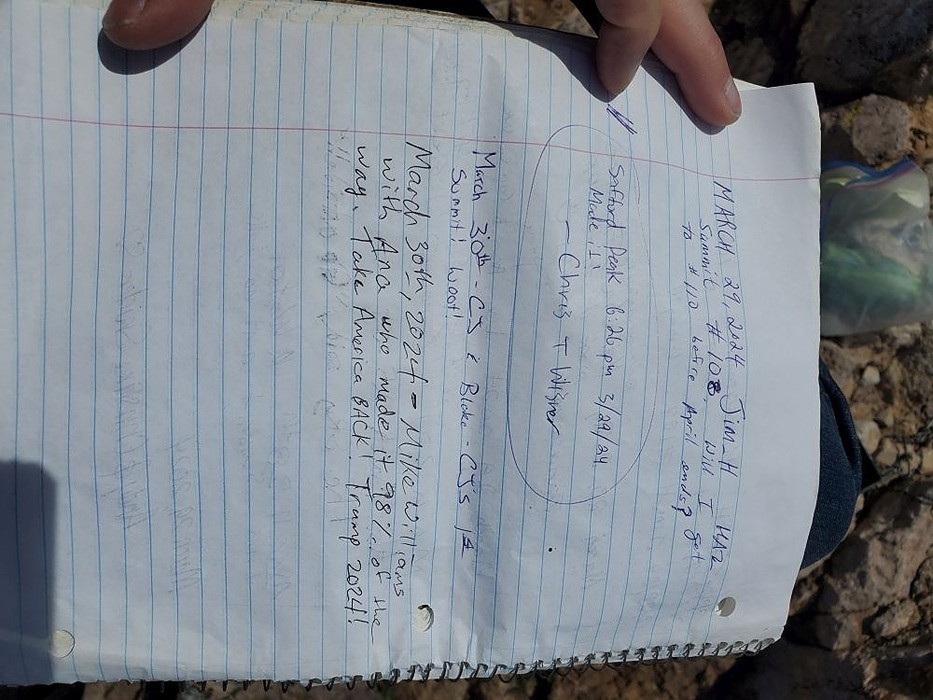 MARCH 29, 2024 Jim-H HAZ
Summit # 108, Will I get
to #110 before April ends?
"
Safford Peak 6:26 pm 3/29/24
Made it!
- Chris T Wisner
March 30th - CJ & Blake - CJ's 1st
Summit! Woot!
March 30th, 2024 - Mike Williams
with Ana who made it 98% of the
way. Take America BACK! Trump 2024!